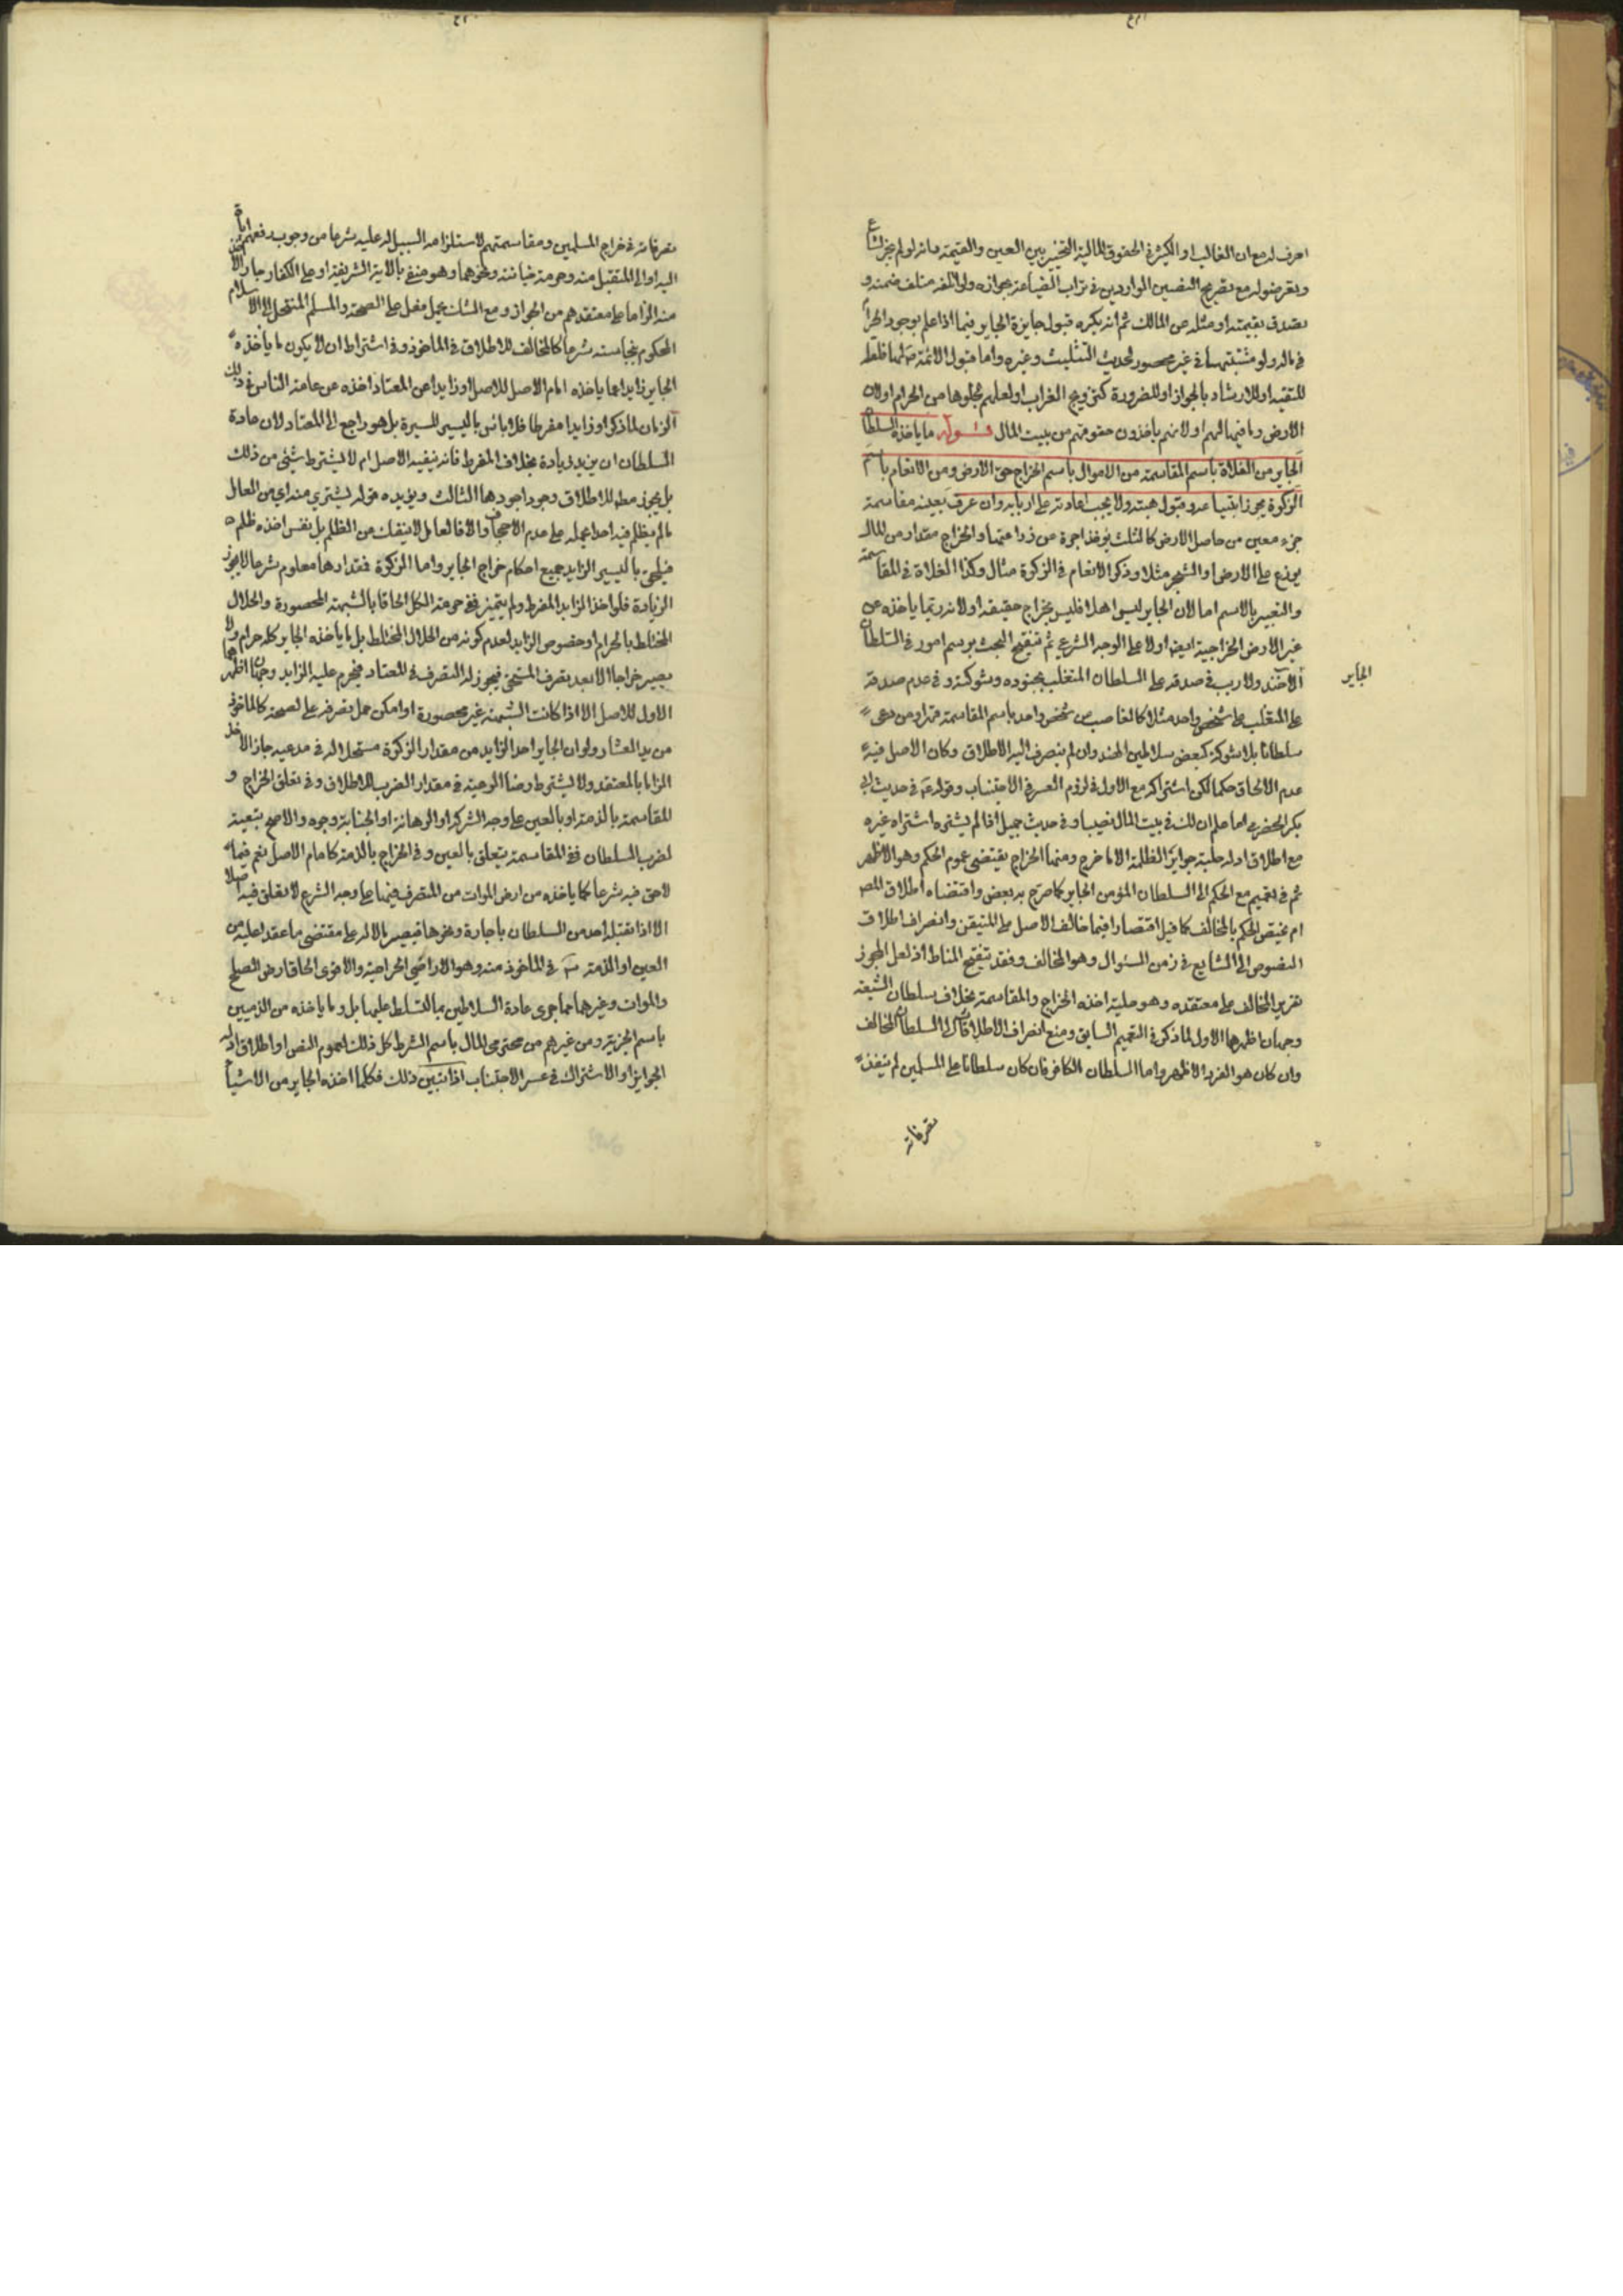 اعرف له مع ان الغالب او الكثير في الحقوق المالية التخيير بين العين والقيمة مانه لو لم يجز لشاع
وتعرضوا له مع تصريح النصين الواردين في تراب الصياغة بجوازه ولو اتلفه متلف ضمنه و
تصدق بقيمته او مثله عن المالك ثم انه يكره قبول جايزة الجاير فيما اذا علم بوجود الحرام
في ماله ولو مشتبها في غير محصور لحديث التثليث وغيره واما قبول الائمة
للتقية او للارشاد بالجواز او للضرورة كتزويج العزاب او لعلمهم بخلوها من الحرام او لان
الارض وما فيها لهم او لانهم ياخذون حقوقهم من بيت المال قوله ما ياخذه السلطان
الجاير من الغلاة باسم المقاسمة من الاموال باسم الخراج حق الارض ومن الانعام باسم
الزكوة يجوز ابتياعه وقبول هبته ولا يجب اعادته على اربابه وان عرف بعينه مقاسمة
جزء معين من حاصل الارض كالثلث يؤخذ اجرة عن زراعتها والخراج مقدار من المال
يوزع على الارض او الشجر مثلا وذكر الانعام في الزكوة مثال وكذا الغلاة في المقاسمة
والتعبير بالاسم اما لان الجاير ليس اهلا فليس بخراج حقيقة او لانه ربما ياخذه عن
غير الارض الخراجية ايضا او لا على الوجه الشرعي ثم تنقيح البحث برسم امور في السلطان
الجاير
الاخذ ولا ريب في صدقه على السلطان المتغلب بجنوده وشوكته وفي عدم صدقه
على المتغلب على شخص واحد مثلا كالغاصب من شخص واحد باسم المقاسمة قهرا ومن دعى
سلطانا بلا شوكة كبعض سلاطين الهند وان لم ينصرف اليه الاطلاق وكان الاصل فيه
عدم الالحاق حكما لكن اشتراكه مع الاول في لزوم العسر في الاجتناب وقوله ع في حديث ابي
بكر الحضرمي اما علم ان لك في بيت المال نصيبا وفي حديث جميل اذا لم يشتره اشتراه غيره
مع اطلاق ادلة حلية جوايز الظلمة الا ما خرج ومنها الخراج يقتضى عموم الحكم وهو الاظهر
ثم في تعميم مع الحكم الى السلطان المؤمن الجاير كما صرح به بعض واقتضاه اطلاق المص
ام يختص الحكم بالمخالف كما قيل اقتصارا فيما خالف الاصل على المتيقن وانصراف اطلاق
النصوص الى الشايع في زمن السؤال وهو المخالف وفقد تنقيح المناط اذ لعل المجوز
تقرير المخالف على معتقده وهو حلية اخذه الخراج والمقاسمة بخلاف سلطان الشيعة
وجهان اظهرهما الاول لما ذكر في التعميم السابق ومنع انصراف الاطلاقات الى السلطان المخالف
وان كان هو الفرد الاظهر واما السلطان الكافر فان كان سلطانا على المسلمين لم ينفذ
تصرفاته
تصرفاته في خراج المسلمين ومقاسمتهم لاستلزامه السبيل له عليه شرعا من وجوب دفعهم اياه
اليه او الى المتقبل منه وحرمة خيانته ونحوهما وهو منفي بالاية الشريفة او على الكفار جاز الاخذ
منه الزاما على معتقدهم من الجواز ومع الشك يحمل فعله على الصحة والمسلم المنتحل الى الاسلام
المحكوم بنجاسته شرعا كالمخالف للاطلاق في الماخوذ وفي اشتراط ان لا يكون ما ياخذه
الجاير زايدا عما ياخذه امام الاصل للاصل او زايدا عن المعتاد اخذه عن عامة الناس في ذلك
الزمان لما ذكر او زايدا مفرطا فلا باس باليسير للسيرة بل هو راجع الى المعتاد لان عادة
السلطان ان يزيد زيادة بخلاف المفرط فانه ينفيه الاصل ام لا يشترط شئ من ذلك
بل يجوز مطه للاطلاق وجوه اجودها الثالث ويؤيده قوله يشتري منه اي من العامل
مالم يظلم فيه احدا بحمله على عدم الاجحاف والا فالعامل لا ينفك من الظلم بل نفس اخذه ظلم
فيلحق باليسير الزايد جميع احكام خراج الجاير واما الزكوة فمقدارها معلوم شرعا لا يجوز
الزيادة فلو اخذ الزايد المفرط ولم يتميز ففي حرمة الكل الحاقا بالشبهة المحصورة والحلال
المختلط بالحرام او خصوص الزايد لعدم كونه من الحلال المختلط بل ما ياخذه الجاير كله حرام ولا
يصير خراجا الا بعد تصرف المستحق فيجوز له التصرف في المعتاد فيحرم عليه الزايد وجهان اظهرهما
الاول للاصل الا اذا كانت الشبهة غير محصورة او امكن حمل تصرفه على الصحة كالماخوذ
من يد العشار ولو ان الجاير اخذ الزايد من مقدار الزكوة مستحلا له في مذهبه جاز الاخذ
الزاما بالمعتقد ولا يشترط رضا الرعية في مقدار الضرب للاطلاق وفي تعلق الخراج و
المقاسمة بالذمة او بالعين على وجه الشركة او الرهانة او الجناية وجوه والاصح تبعيته
لضرب السلطان ففي المقاسمة يتعلق بالعين وفي الخراج بالذمة كامام الاصل نعم فيما
لا حق فيه شرعا كما ياخذه من ارض الموات من المتصرف فيها على وجه الشرع لا تعلق فيه اصلا
الا اذا تقبله احد من السلطان باجارة ونحوها فيصير مالا له على مقتضى ما عقد عليه من
العين او الذمة في الماخوذ منه وهو الاراضي الخراجية والاقوى الحاق ارض الصلح
والموات وغيرهما مما جرى عادة السلاطين بالتسلط عليها بل وما ياخذه من الذميين
باسم الجزية ومن غيرهم من محترمى المال باسم الشرط كل ذلك لعموم النص او اطلاق ادلة
الجوايز او الاشتراك في عسر الاجتناب اذا تبين ذلك فكلما اخذه الجاير من الاشياء